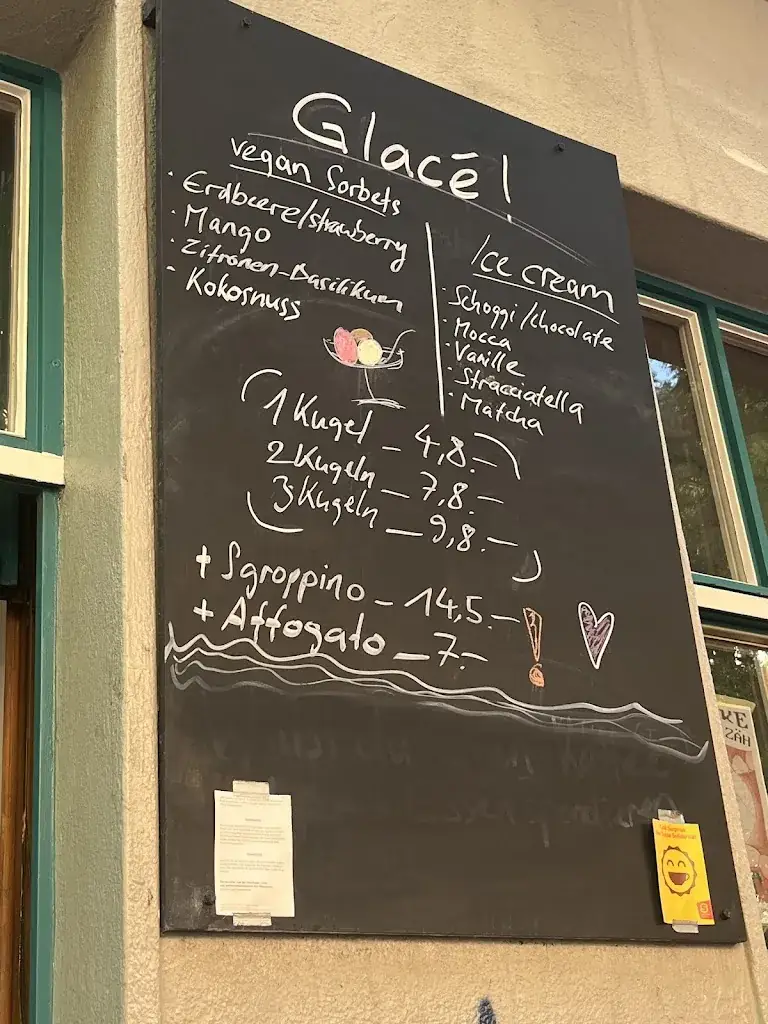 Glacé!
vegan Sorbets
· Erdbeere/strawberry
· Mango
· Zitronen-Basilikum
· Kokosnuss
Ice cream
· Schoggi/chocolate
· Mocca
· Vanille
· Stracciatella
· Matcha
1 Kugel – 4,8.–
2 Kugeln – 7,8.–
3 Kugeln – 9,8.–
+ Sgroppino – 14,5.–
+ Affogato – 7.–
ZÄH